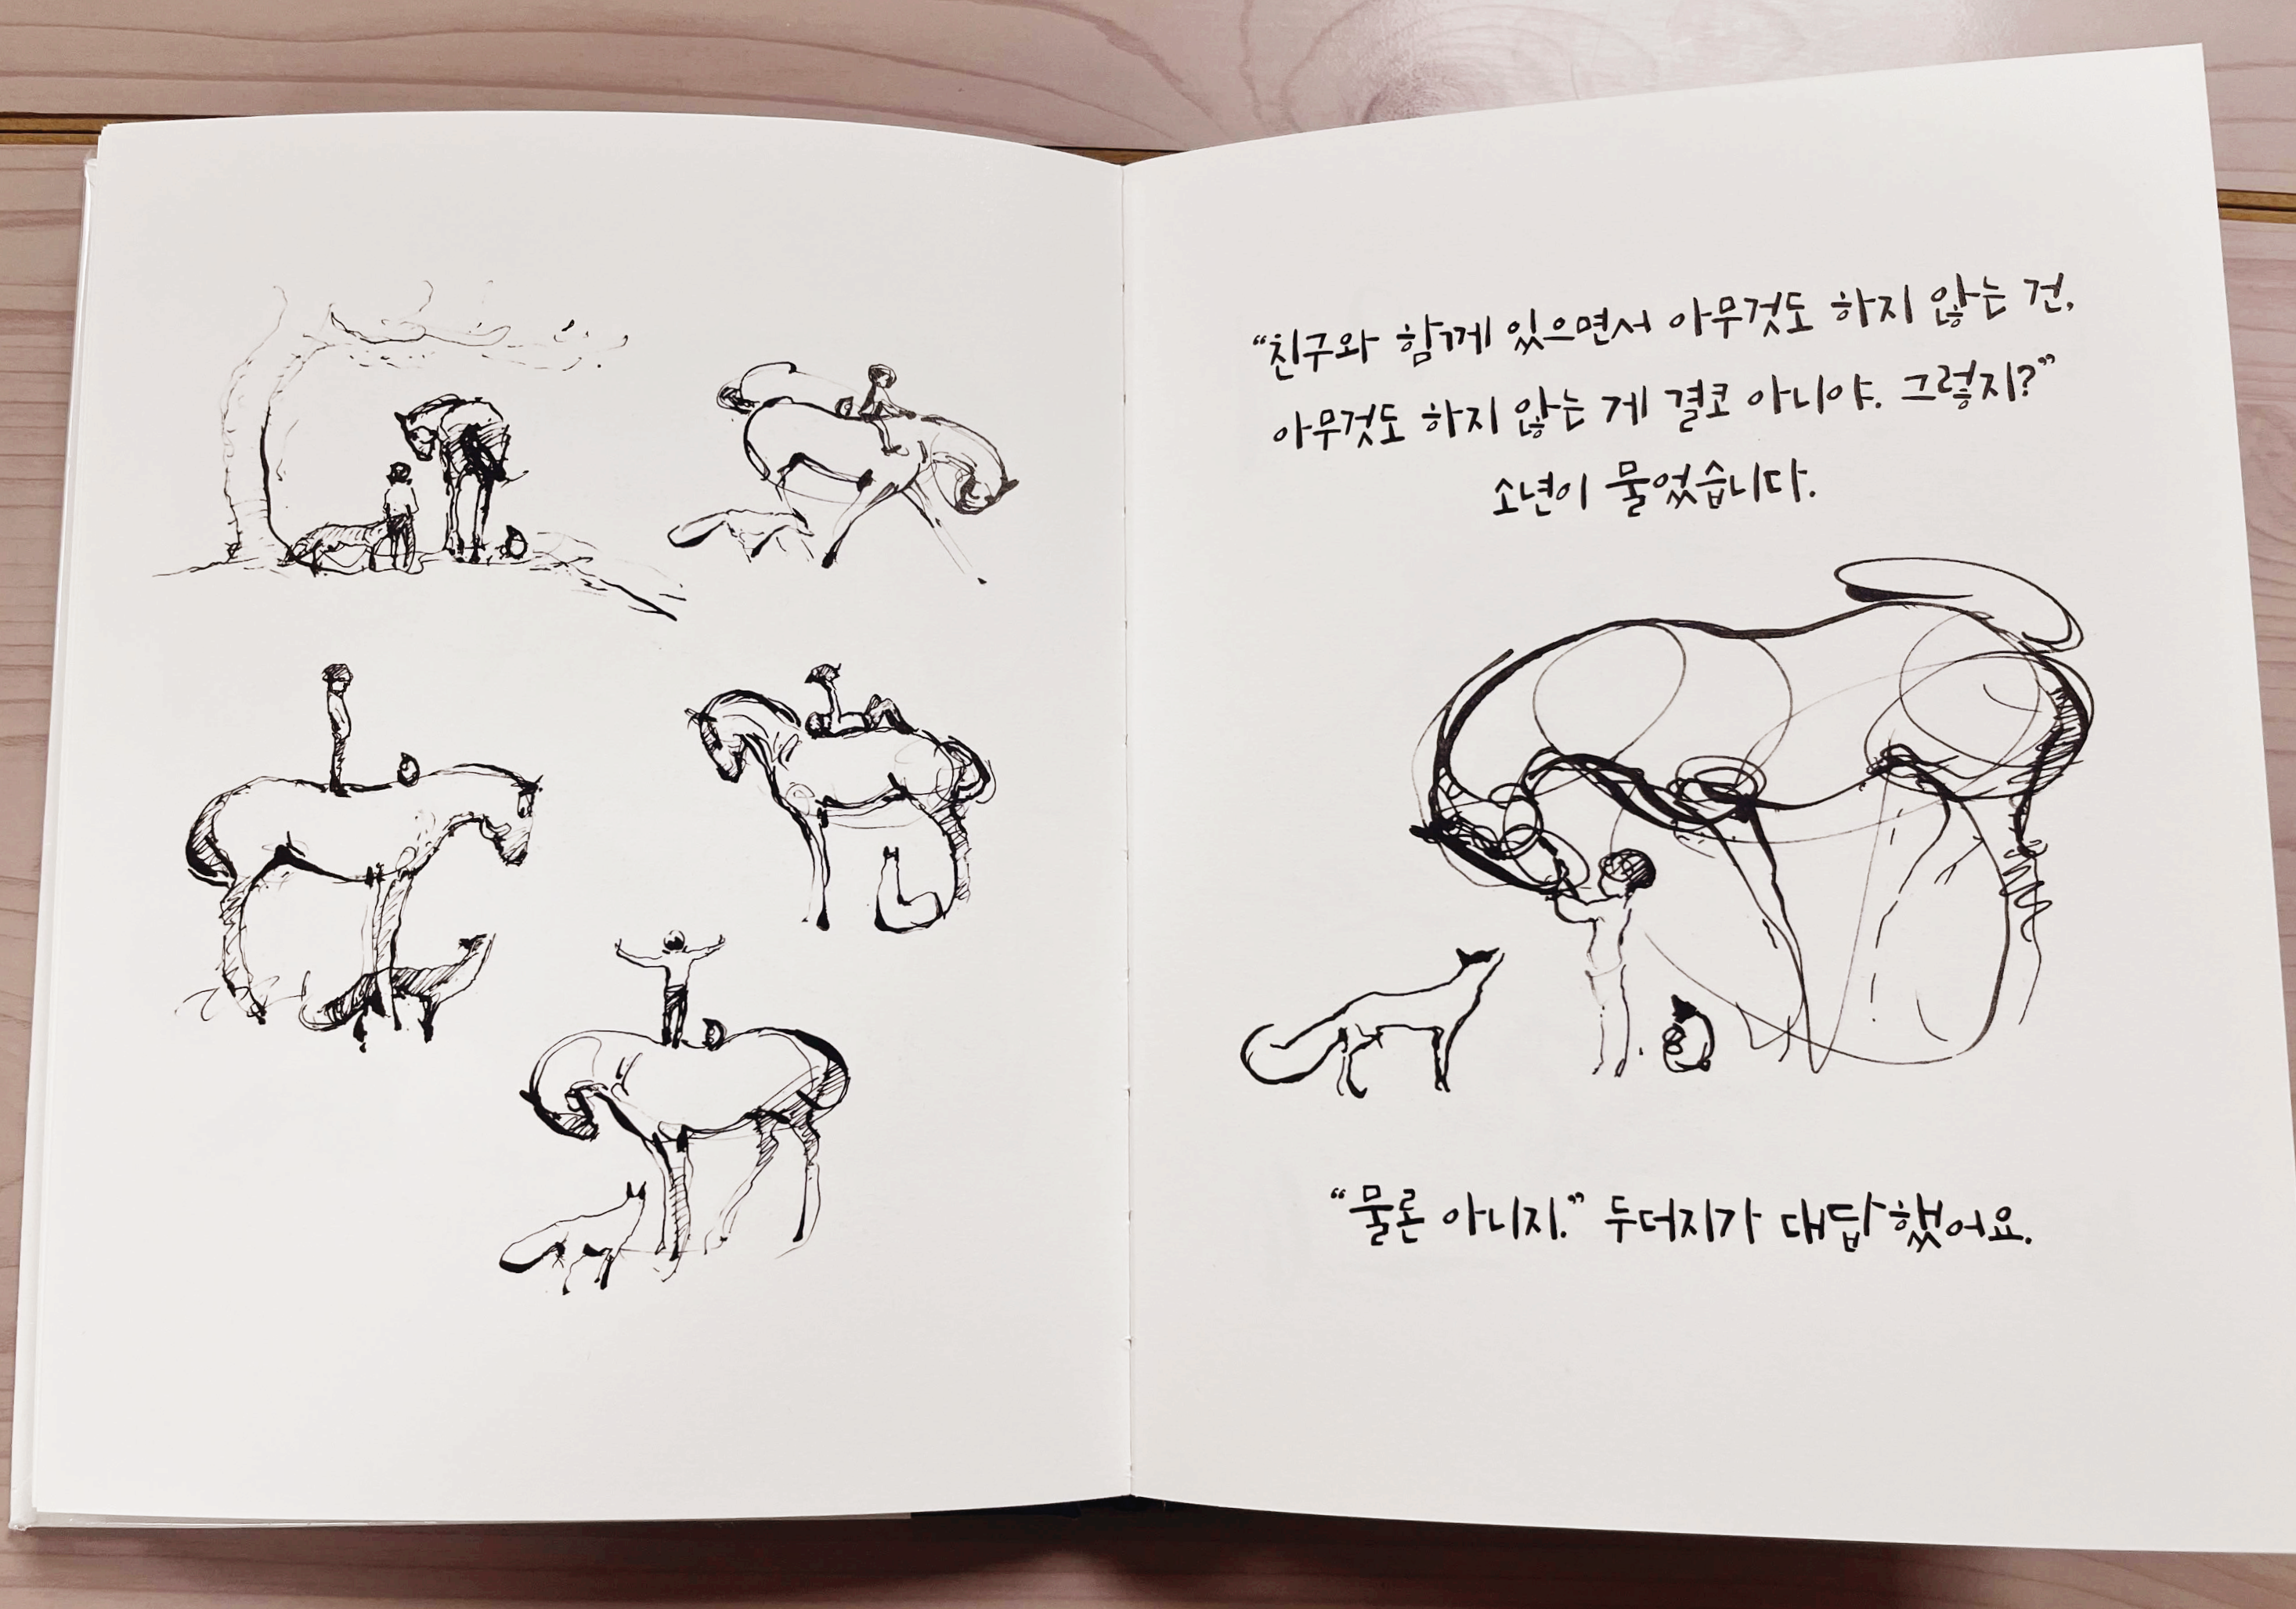 “친구와 함께 있으면서 아무것도 하지 않는 건,
아무것도 하지 않는 게 결코 아니야. 그렇지?”
소년이 물었습니다.
“물론 아니지.” 두더지가 대답했어요.